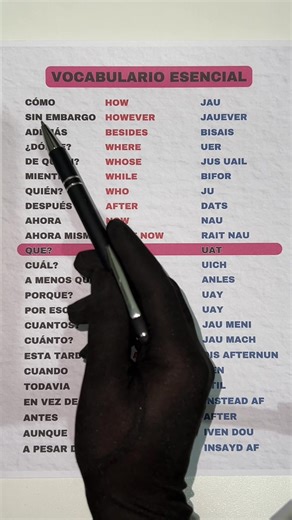 VOCABULARIO ESENCIAL
CÓMO HOW JAU
SIN EMBARGO HOWEVER JAUEVER
ADEMÁS BESIDES BISAIS
WHERE UER
WHOSE JUS UAIL
WHILE BIFOR
QUIÉN? WHO JU
DESPUÉS AFTER DATS
AHORA NOW NAU
AHORA NOW RAIT NAU
QUE? UAT
CUÁL? UICH
A MENOS ANLES
PORQUE? UAY
POR UAY
CUANTOS? JAU MENI
CUÁNTO? JAU MACH
ESTA AFTERNUN
CUANDO
TODAVIA
EN VEZ INSTEAD AF
ANTES AFTER
AUNQUE IVEN DOU
A PESAR INSAYD AF